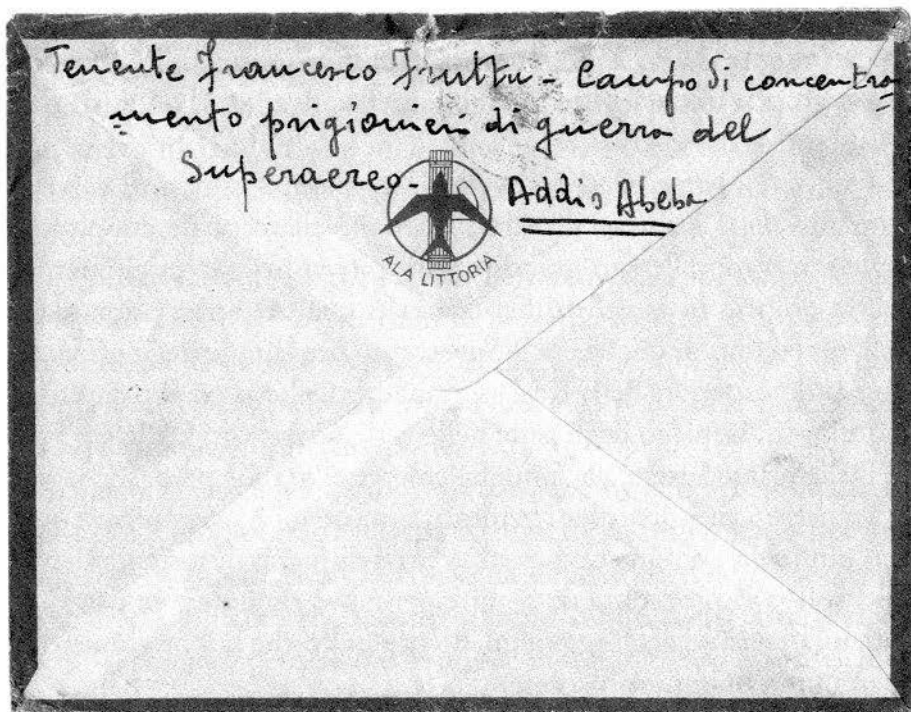 Tenente Francesco Fruttu - Campo di concentra
mento prigionieri di guerra del
Superaereo - Addis Abeba
ALA LITTORIA